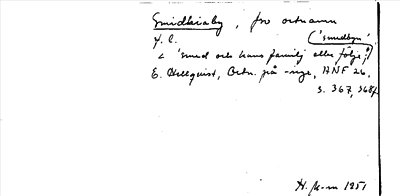 Smidkiaby, fro ortnamn
f. l. ('smedbyn'
< 'smed och hans familj eller följe')
E. Hellquist, Ortn. på -inge, ANF 26,
s. 367, 368f.
H. 1951